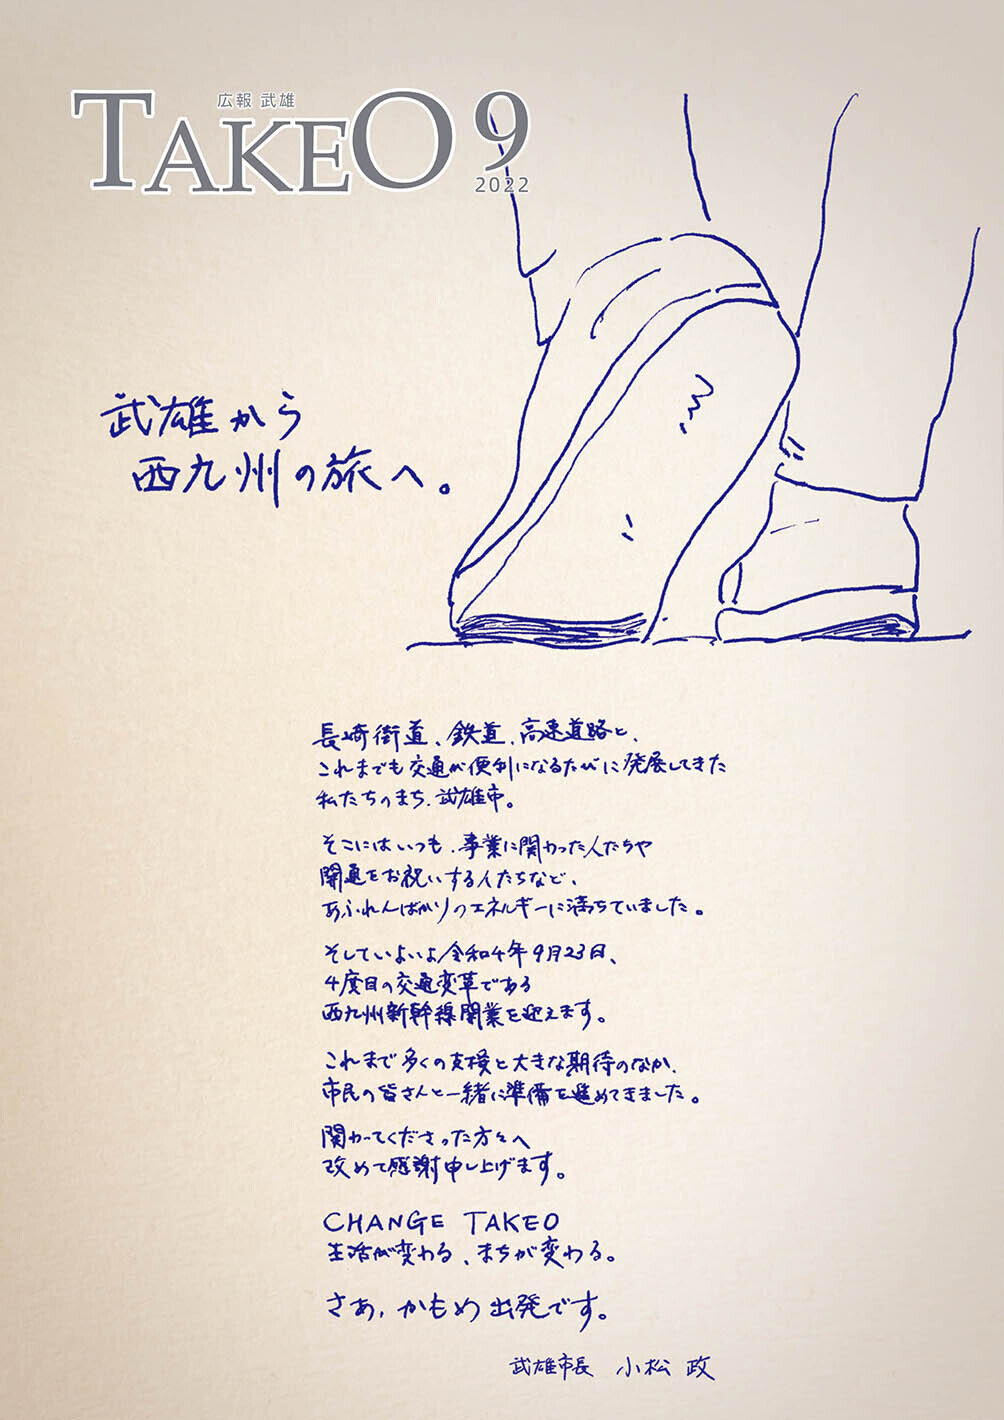 広報 武雄
TAKEO 9
2022
武雄から
西九州の旅へ。
長崎街道、鉄道、高速道路と、
これまでも交通が便利になるたびに発展してきた
私たちのまち、武雄市。
そこにはいつも、事業に関わった人たちや
開通をお祝いする人たちなど、
あふれんばかりのエネルギーに満ちていました。
そしていよいよ令和4年9月23日、
4度目の交通変革である
西九州新幹線開業を迎えます。
これまで多くの支援と大きな期待のなか、
市民の皆さんと一緒に準備を進めてきました。
関わってくださった方々へ
改めて感謝申し上げます。
CHANGE TAKEO
生活が変わる、まちが変わる。
さあ、かもめ出発です。
武雄市長 小松 政